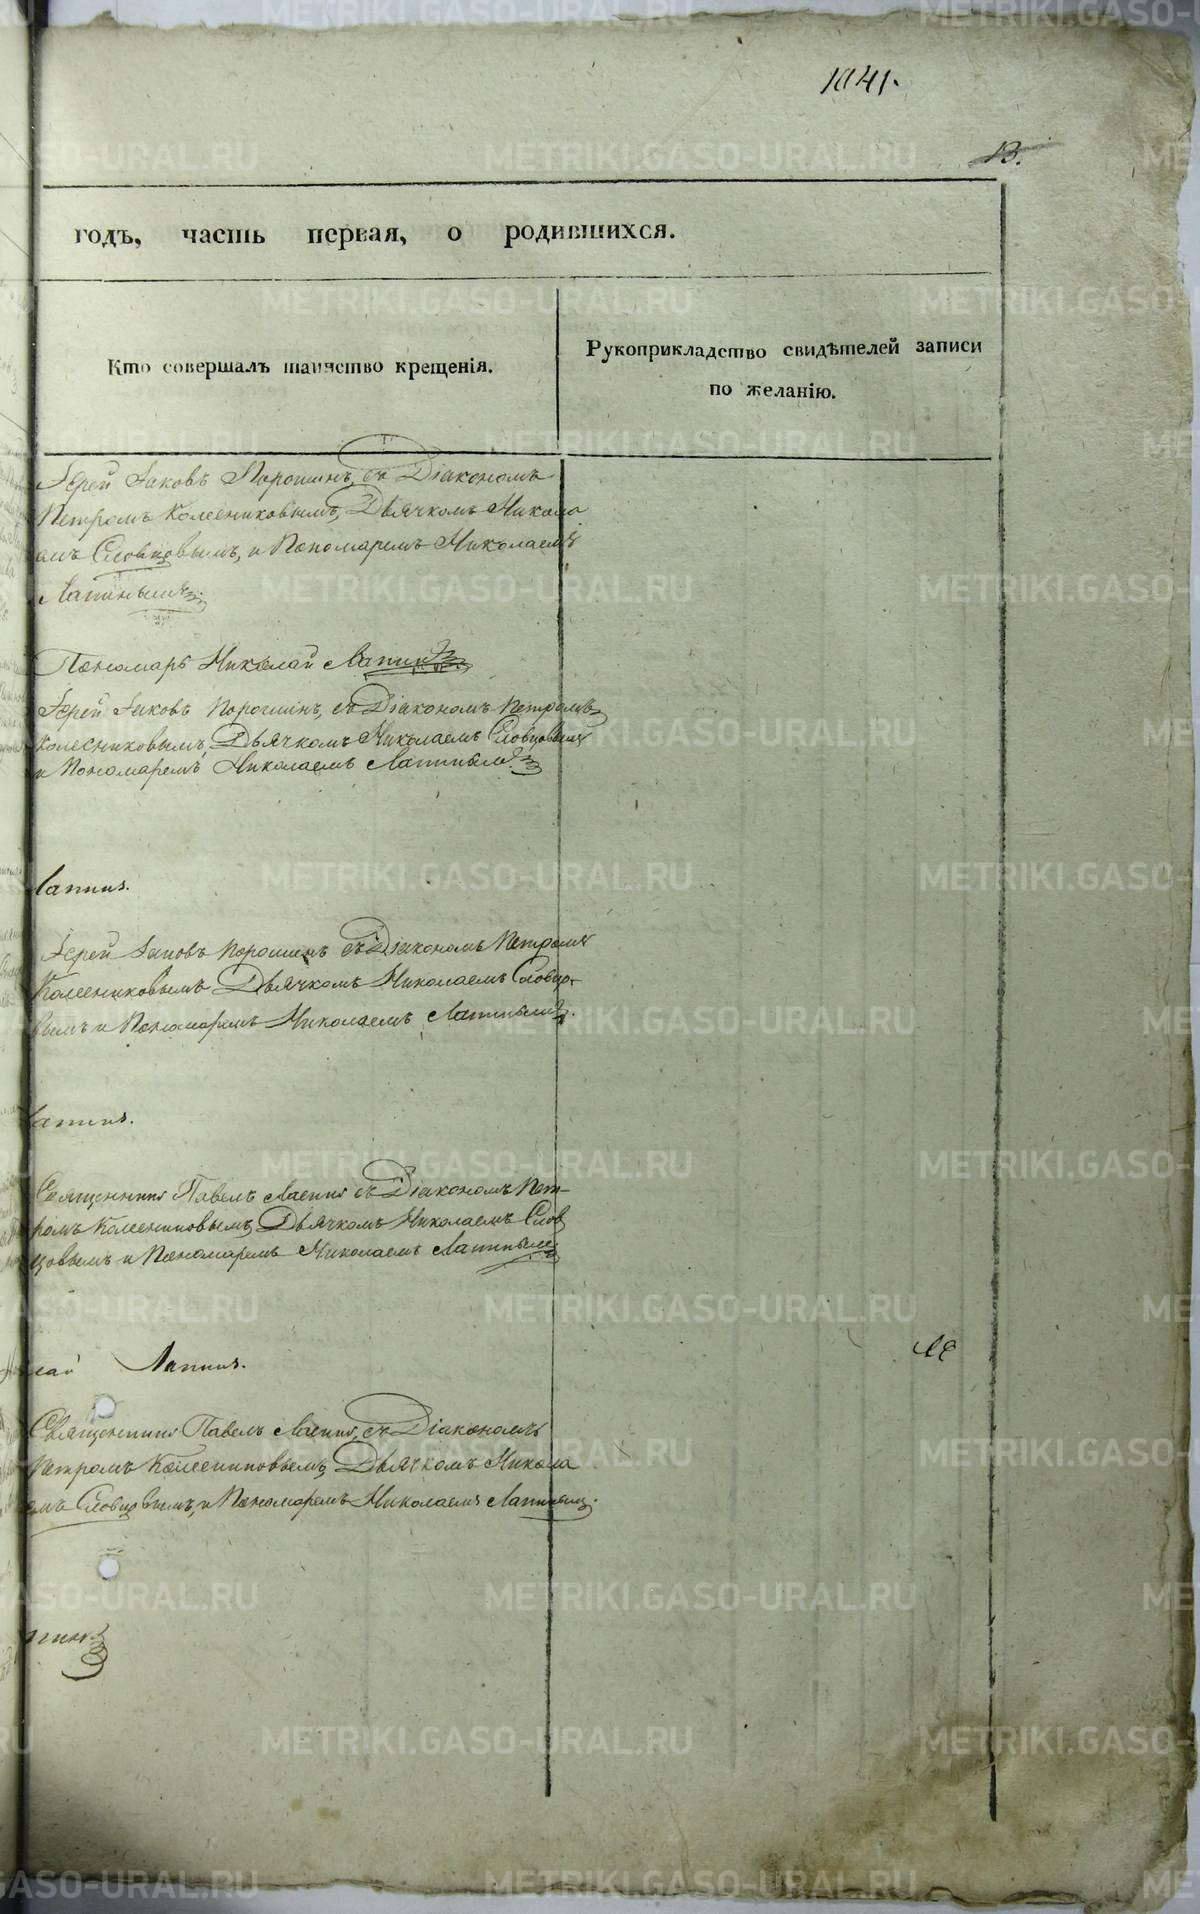 1041.
13.
годъ, часть первая, о родившихся.
Кто совершалъ таинство крещенія.
Рукоприкладство свидѣтелей записи
по желанію.
Іерей Іаковъ Порошинъ, съ Діакономъ
Петромъ Колесниковымъ, Дьячкомъ Никола
емъ Словцовымъ, и Пономаремъ Николаемъ
Лапинымъ.
Пономарь Николай Лапинъ
Іерей Іаковъ Порошинъ, съ Діакономъ Петромъ
Колесниковымъ, Дьячкомъ Николаемъ Словцовымъ
и Пономаремъ Николаемъ Лапинымъ
Лапинъ.
Іерей Іаковъ Порошинъ съ Діакономъ Петромъ
Колесниковымъ Дьячкомъ Николаемъ Словцо-
вымъ и Пономаремъ Николаемъ Лапинымъ.
Лапинъ.
Священникъ Павелъ съ Діакономъ Пет-
ромъ Колесниковымъ, Дьячкомъ Николаемъ Слов
цовымъ и Пономаремъ Николаемъ Лапинымъ
лай Лапинъ.
Священникъ Павелъ съ Діакономъ
Петромъ Колесниковымъ, Дьячкомъ Никола
емъ Словцовымъ, и Пономаремъ Николаемъ Лапинымъ.
METRIKI.GASO-URAL.RU